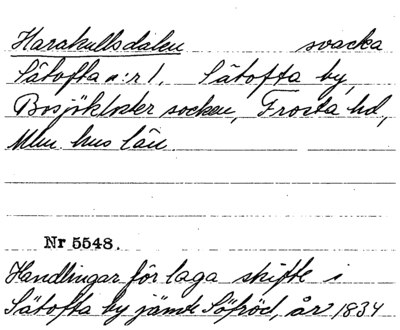 Harakullsdalen svacka
Sätofta n:r 1. Sätofta by,
Bosjökloster socken, Frosta hd,
Mlm. hus län
Nr 5548.
Handlingar för laga skifte i
Sätofta by jämte Söfröd, år 1834